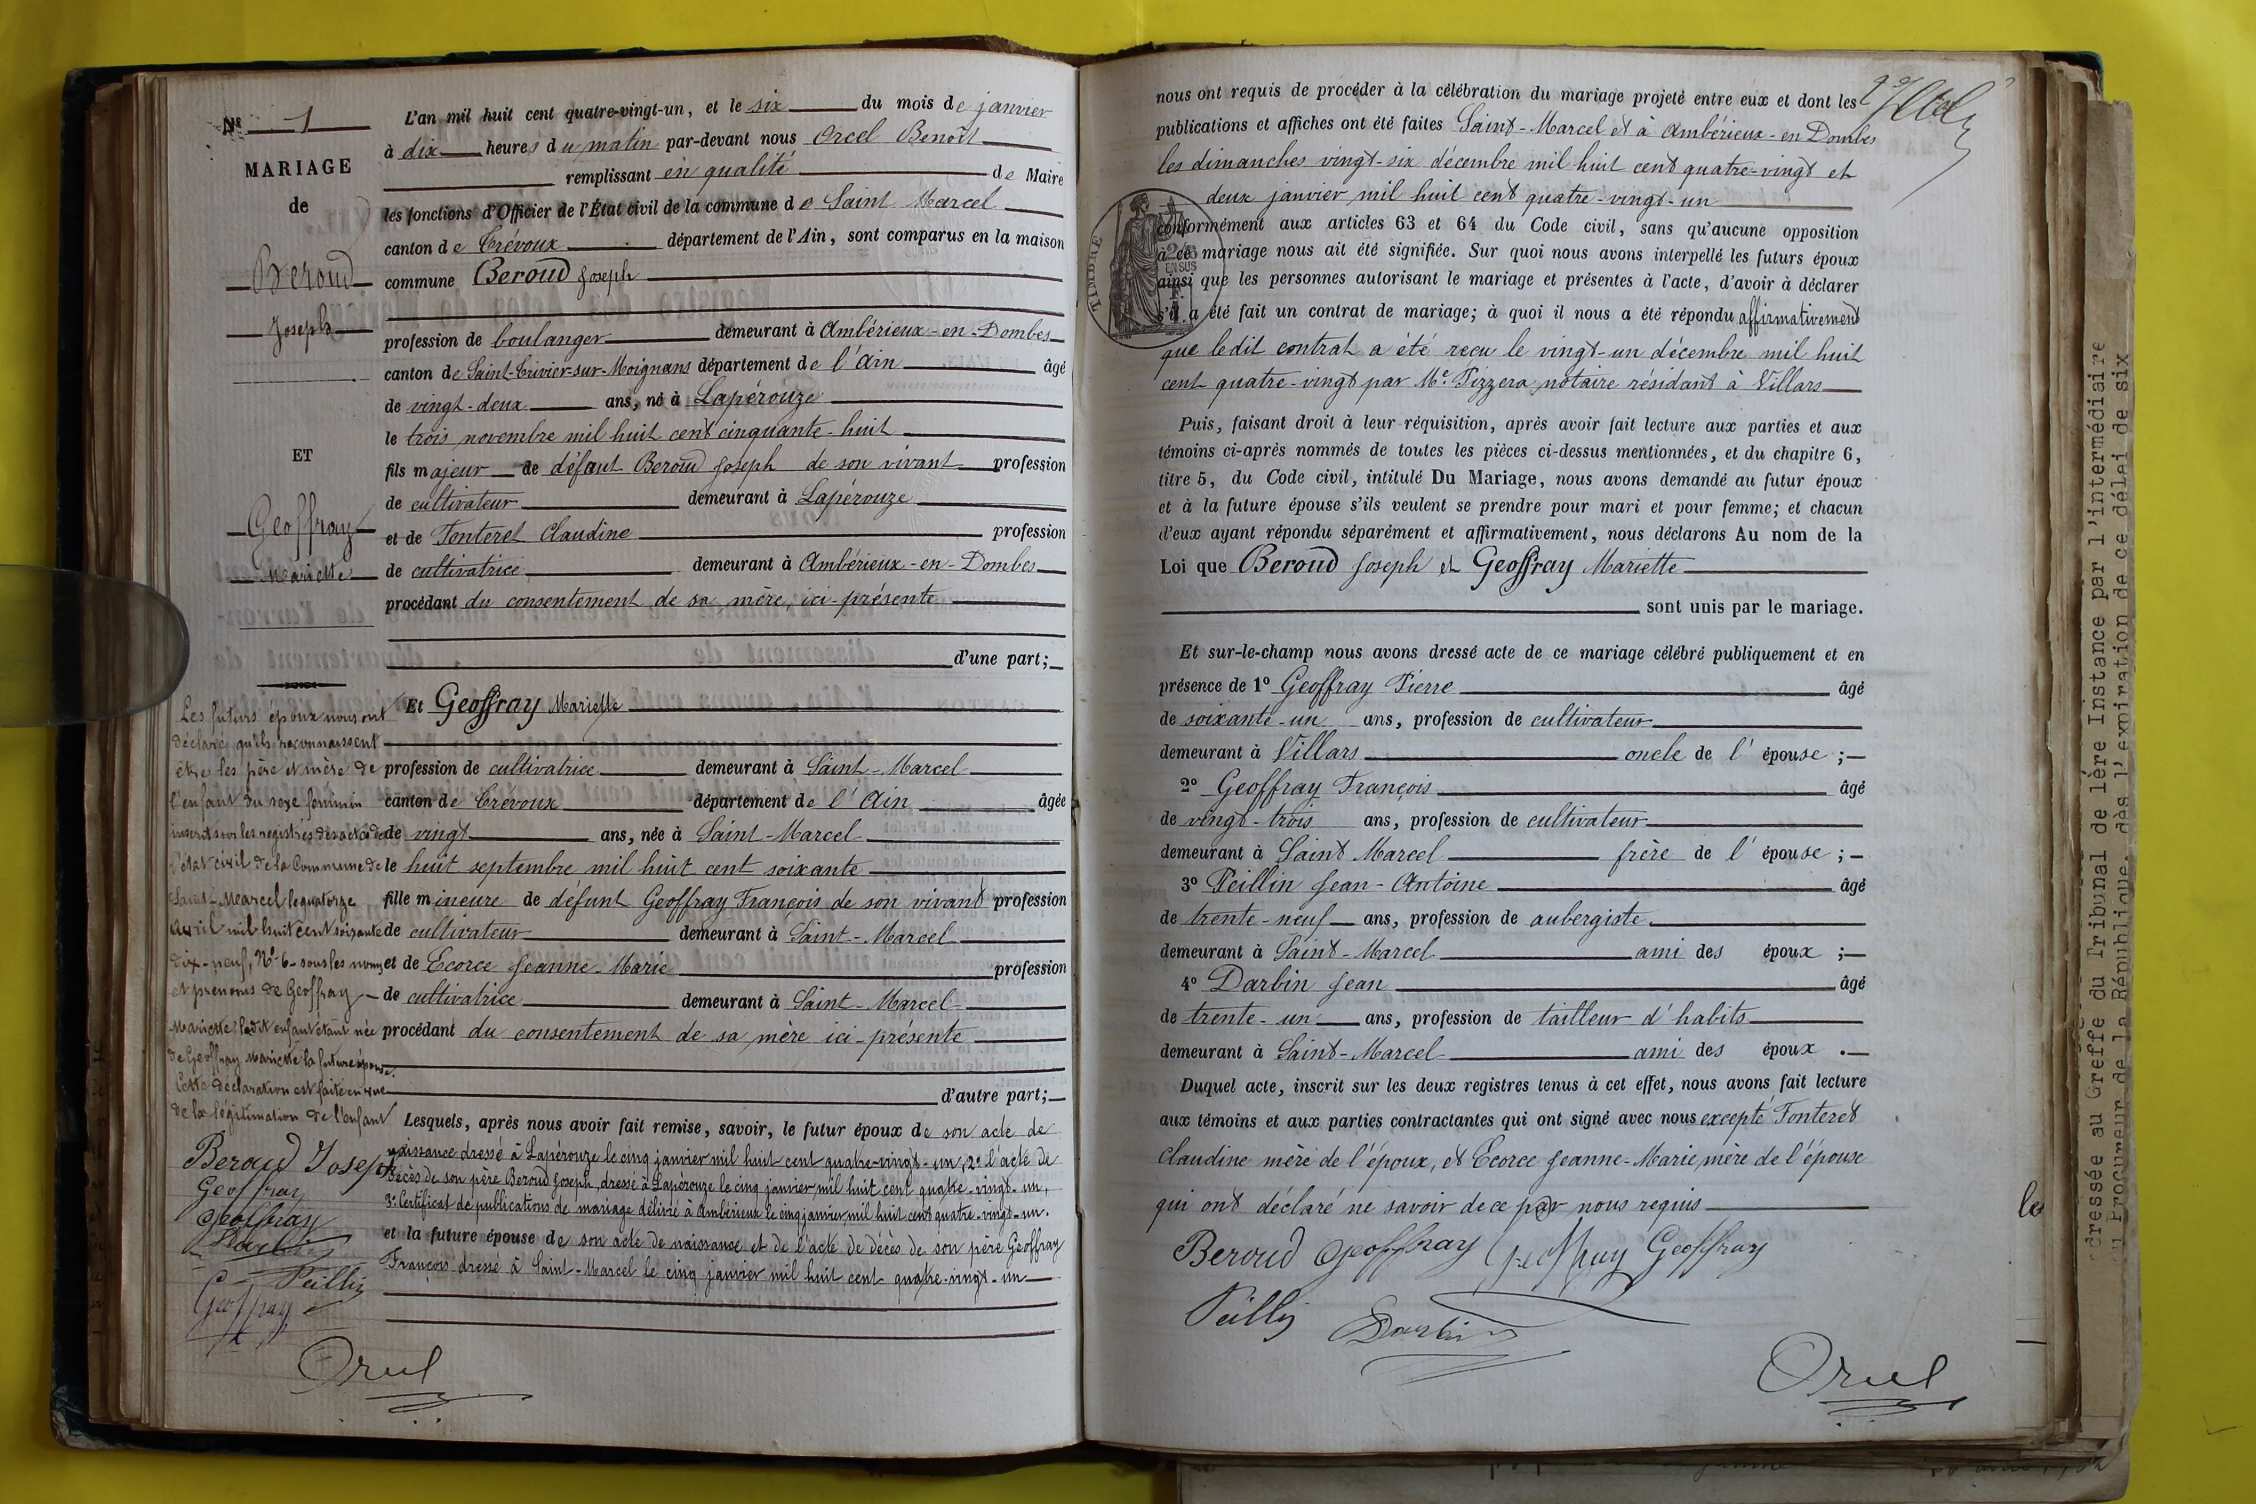 Nº 1
MARIAGE
de
Beroud
Joseph
ET
Geoffray
Mariette
Les futurs époux nous ont
déclaré qu'ils reconnaissent
être les père et mère de
l'enfant du sexe féminin
inscrit sur les registres des actes de
l'état civil de la Commune de
Saint-Marcel le quatorze
avril mil huit cent soixante
dix-neuf, Nº 6 sous les noms
et prénoms de Geoffray
Mariette ledit enfant étant née
de Geoffray Mariette la future épouse.
Cette déclaration est faite en vue
de la légitimation de l'enfant
Beroud Joseph
Geoffray
Geoffray
Darbin
Peillin
Geoffray
Orcel
L'an mil huit cent quatre-vingt-un, et le six du mois de janvier
à dix heures du matin par-devant nous Orcel Benoît
remplissant en qualité de Maire
les fonctions d'Officier de l'État civil de la commune de Saint Marcel
canton de Trévoux département de l'Ain, sont comparus en la maison
commune Beroud Joseph
profession de boulanger demeurant à Ambérieux-en-Dombes
canton de Saint-Trivier-sur-Moignans département de l'Ain âgé
de vingt-deux ans, né à Lapérouze
le trois novembre mil huit cent cinquante-huit
fils majeur de défunt Beroud Joseph de son vivant profession
de cultivateur demeurant à Lapérouze
et de Fonteret Claudine profession
de cultivatrice demeurant à Ambérieux-en-Dombes
procédant du consentement de sa mère, ici-présente
d'une part;
Et Geoffray Mariette
profession de cultivatrice demeurant à Saint-Marcel
canton de Trévoux département de l'Ain âgée
de vingt ans, née à Saint-Marcel
le huit septembre mil huit cent soixante
fille mineure de défunt Geoffray François de son vivant profession
de cultivateur demeurant à Saint-Marcel
et de Ecorce Jeanne-Marie profession
de cultivatrice demeurant à Saint-Marcel
procédant du consentement de sa mère ici-présente
d'autre part;
Lesquels, après nous avoir fait remise, savoir, le futur époux de son acte de
naissance dressé à Lapérouze le cinq janvier mil huit cent quatre-vingt-un, 2º l'acte de
décès de son père Beroud Joseph, dressé à Lapérouze le cinq janvier mil huit cent quatre-vingt-un,
3º Certificat de publications de mariage délivré à Ambérieux le cinq janvier mil huit cent quatre-vingt-un.
et la future épouse de son acte de naissance et de l'acte de décès de son père Geoffray
François dressé à Saint-Marcel le cinq janvier mil huit cent quatre-vingt-un
nous ont requis de procéder à la célébration du mariage projeté entre eux et dont les
publications et affiches ont été faites Saint-Marcel et à Ambérieux-en Dombes
les dimanches vingt-six décembre mil huit cent quatre-vingt et
deux janvier mil huit cent quatre-vingt-un
conformément aux articles 63 et 64 du Code civil, sans qu'aucune opposition
à ce mariage nous ait été signifiée. Sur quoi nous avons interpellé les futurs époux
ainsi que les personnes autorisant le mariage et présentes à l'acte, d'avoir à déclarer
s'il a été fait un contrat de mariage; à quoi il nous a été répondu affirmativement
que ledit contrat a été reçu le vingt-un décembre mil huit
cent quatre-vingt par Me. Pizzera notaire résidant à Villars
TIMBRE
EN SUS
Puis, faisant droit à leur réquisition, après avoir fait lecture aux parties et aux
témoins ci-après nommés de toutes les pièces ci-dessus mentionnées, et du chapitre 6,
titre 5, du Code civil, intitulé Du Mariage, nous avons demandé au futur époux
et à la future épouse s'ils veulent se prendre pour mari et pour femme; et chacun
d'eux ayant répondu séparément et affirmativement, nous déclarons Au nom de la
Loi que Beroud Joseph et Geoffray Mariette
sont unis par le mariage.
Et sur-le-champ nous avons dressé acte de ce mariage célébré publiquement et en
présence de 1º Geoffray Pierre âgé
de soixante-un ans, profession de cultivateur
demeurant à Villars oncle de l'épouse;
2º Geoffray François âgé
de vingt-trois ans, profession de cultivateur
demeurant à Saint Marcel frère de l'épouse;
3º Peillin Jean-Antoine âgé
de trente-neuf ans, profession de aubergiste
demeurant à Saint-Marcel ami des époux;
4º Darbin Jean âgé
de trente-un ans, profession de tailleur d'habits
demeurant à Saint-Marcel ami des époux.
Duquel acte, inscrit sur les deux registres tenus à cet effet, nous avons fait lecture
aux témoins et aux parties contractantes qui ont signé avec nous excepté Fonteret
Claudine mère de l'époux, et Ecorce Jeanne-Marie, mère de l'épouse
qui ont déclaré ne savoir de ce par nous requis
Beroud Geoffray Geoffray Geoffray
Peillin Darbin
Orcel
le
dressée au Greffe du Tribunal de 1ère Instance par l'intermédiaire
du Procureur de la République, dès l'expiration de ce délai de six